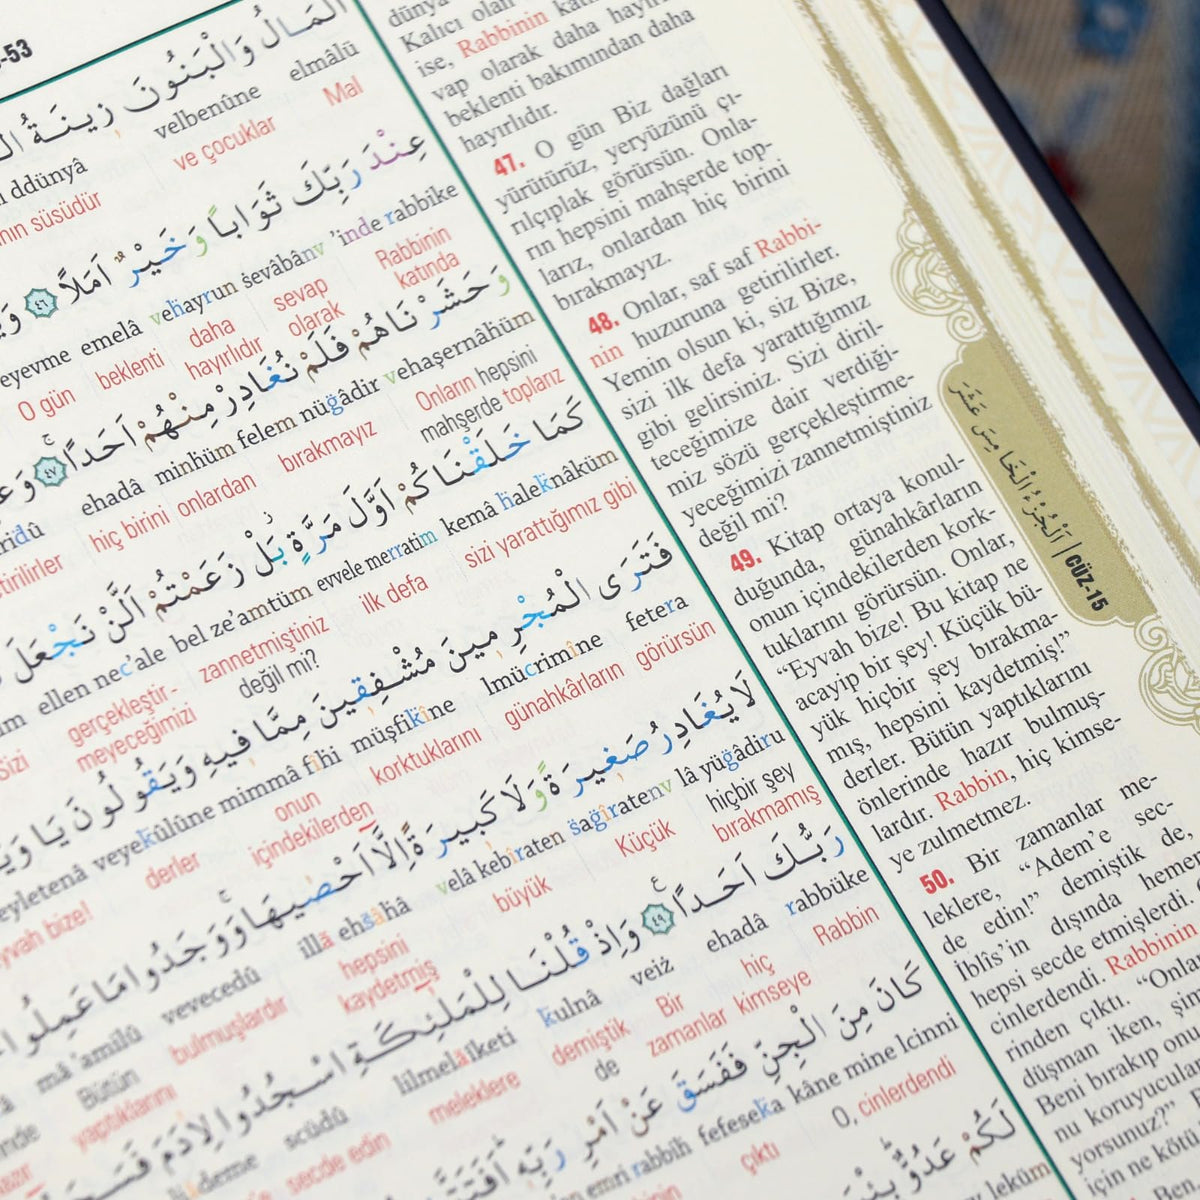 -53
اَلْمَالُ وَالْبَنُونَ زِينَةُ
elmâlü velbenûne ddünyâ
Mal ve çocuklar süsüdür
عِنْدَ رَبِّكَ ثَوَابًا وَخَيْرٌ اَمَلًا ﴿٤٦﴾
'inde rabbike ŝevâbânv vehayrun emelâ
Rabbinin katında sevap olarak daha hayırlıdır beklenti O gün
وَحَشَرْنَاهُمْ فَلَمْ نُغَادِرْ مِنْهُمْ اَحَدًا ﴿٤٧﴾
vehaşernâhüm felem nüğâdir minhüm ehadâ
Onların hepsini mahşerde toplarız bırakmayız onlardan hiç birini
كَمَا خَلَقْنَاكُمْ اَوَّلَ مَرَّةٍ بَلْ زَعَمْتُمْ اَلَّنْ نَجْعَلَ
kemâ haleknâküm evvele merratim bel ze'amtüm ellen nec'ale
sizi yarattığımız gibi ilk defa zannetmiştiniz değil mi? gerçekleştir-meyeceğimizi Sizi
فَتَرَى الْمُجْرِمِينَ مُشْفِقِينَ مِمَّا فِيهِ وَيَقُولُونَ يَا
fetera lmücrimîne müşfikîne mimmâ fîhi veyekûlûne
görürsün günahkârların korktuklarını onun içindekilerden derler
لَا يُغَادِرُ صَغِيرَةً وَلَا كَبِيرَةً اِلَّا اَحْصٰيهَا وَوَجَدُوا مَا عَمِلُوا
lâ yüğâdiru sağîratenv velâ kebîraten illâ ehsâhâ vevecedû mâ 'amilû
hiçbir şey bırakmamış Küçük büyük hepsini kaydetmiş bulmuşlardır Bütün yaptıklarını
رَبُّكَ اَحَدًا ﴿٤٩﴾ وَاِذْ قُلْنَا لِلْمَلٰٓئِكَةِ اسْجُدُوا لِاٰدَمَ
rabbüke ehadâ veiż kulnâ lilmelâiketi scüdû
Rabbin hiç kimseye Bir zamanlar demiştik de meleklere secde edin
كَانَ مِنَ الْجِنِّ فَفَسَقَ عَنْ اَمْرِ رَبِّهِ
kâne mine lcinni fefeseka emri rabbih
O, cinlerdendi çıktı
لَكُمْ عَدُوٌّ
leküm
dünya
Kalıcı olan
ise, Rabbinin
vap olarak daha
beklenti bakımından daha
hayırlıdır.
47. O gün Biz dağları
yürütürüz, yeryüzünü çı-
rılçıplak görürsün. Onla-
rın hepsini mahşerde top-
larız, onlardan hiç birini
bırakmayız.
48. Onlar, saf saf Rabbi-
nin huzuruna getirilirler.
Yemin olsun ki, siz Bize,
sizi ilk defa yarattığımız
gibi gelirsiniz. Sizi diril-
teceğimize dair verdiği-
miz sözü gerçekleştirme-
yeceğimizi zannetmiştiniz
değil mi?
49. Kitap ortaya konul-
duğunda, günahkârların
onun içindekilerden kork-
tuklarını görürsün. Onlar,
“Eyvah bize! Bu kitap ne
acayip bir şey! Küçük bü-
yük hiçbir şey bırakma-
mış, hepsini kaydetmiş!”
derler. Bütün yaptıklarını
önlerinde hazır bulmuş-
lardır. Rabbin, hiç kimse-
ye zulmetmez.
50. Bir zamanlar me-
leklere, “Adem’e sec-
de edin!” demiştik de,
İblîs’in dışında hemen
hepsi secde etmişlerdi.
cinlerdendi. Rabbinin
rinden çıktı. “Onla
düşman iken, şim
Beni bırakıp onu
nu koruyucular
yorsunuz?”
için ne kötü
اَلْجُزْءُ الْخَامِسَ عَشَرَ | CÜZ-15